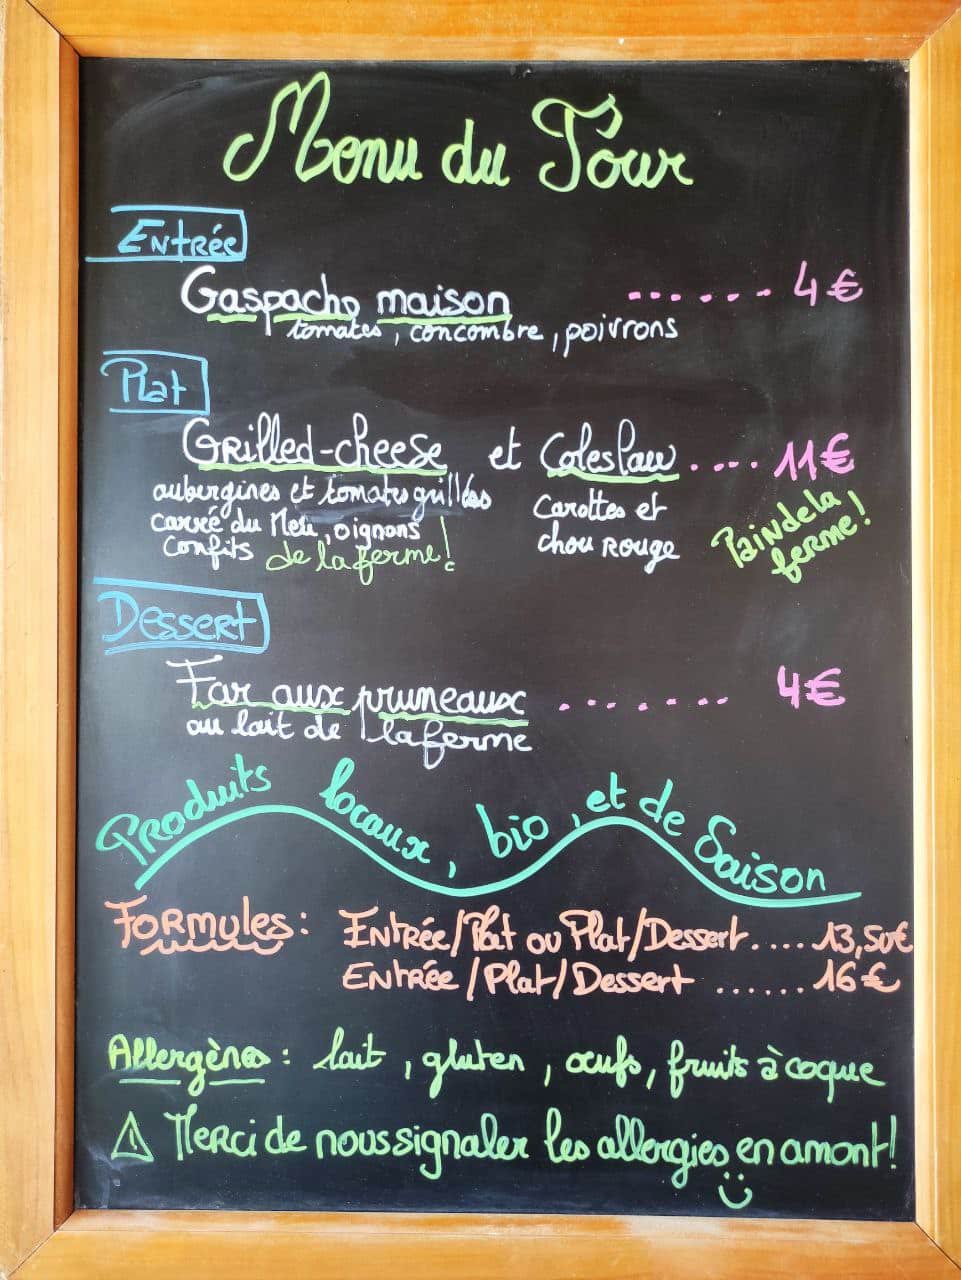 Menu du Jour
Entrée
Gaspacho maison ...... 4€
tomates, concombre, poivrons
Plat
Grilled-cheese et Coleslaw .... 11€
aubergines et tomates grillées
carré du Meu, oignons
confits de la ferme!
Carottes et
chou rouge
Pain de la
ferme!
Dessert
Far aux pruneaux ....... 4€
au lait de la ferme
Produits locaux, bio, et de Saison
Formules: Entrée/Plat ou Plat/Dessert.... 13,50€
Entrée/Plat/Dessert ...... 16€
Allergènes: lait, gluten, oeufs, fruits à coque
⚠ Merci de nous signaler les allergies en amont!